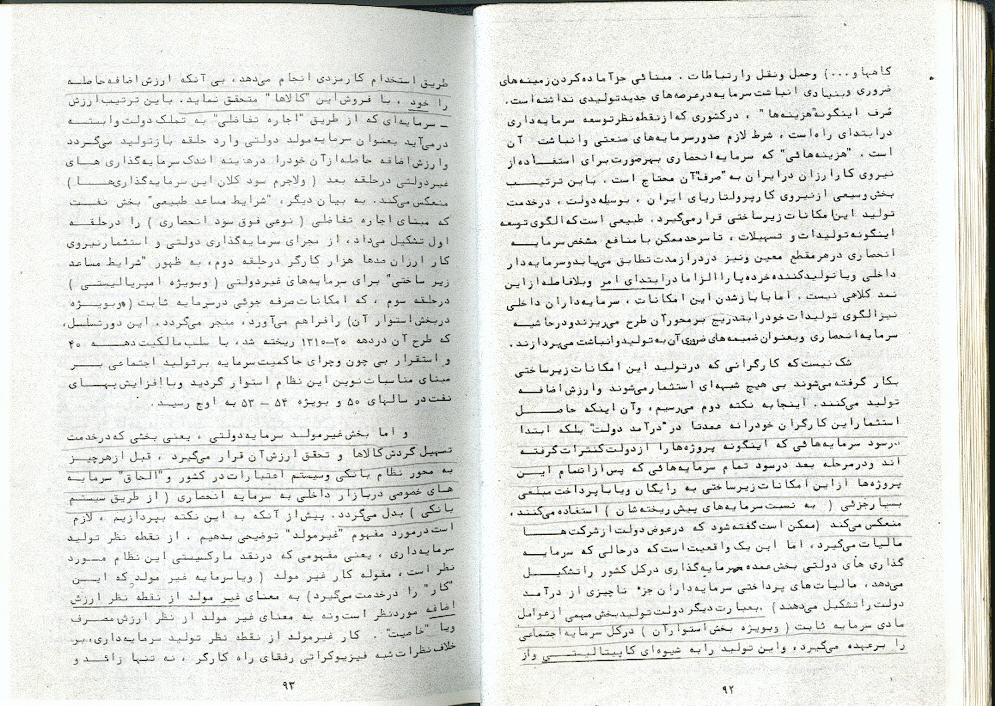 گاهها و...) وحمل ونقل وارتباطات . مبنائی جزآماده‌کردن زمینه‌های
ضروری وبنیادی انباشت سرمایه درعرصه‌های جدیدتولیدی نداشته‌است.
صرف اینگونه"هزینه‌ها" ، درکشوری که ازنقطه‌نظرتوسعه سرمایه‌داری
درابتدای راه‌است ، شرط لازم صدورسرمایه‌های صنعتی وانباشت آن
است . "هزینه‌هائی" که سرمایه‌انحصاری بهرصورت برای استفــاده از
نیروی کارارزان درایران به"صرف"آن محتاج است . باین ترتیــب
بخش وسیعی ازنیروی کارپرولتاریای ایران ، بوسیله‌دولت ، درخدمت
تولید این‌امکانات زیرساختی قرارمی‌گیرد. طبیعی است که‌الگوی توسعه
اینگونه‌تولیدات و تسهیلات ، تاسرحدممکن بامنافع مشخص سرمایــه
انحصاری درهرمقطع معین ونیز دردرازمدت تطابق می‌یابدوسرمایه‌دار
داخلی ویاتولیدکننده‌خرده‌پاراالزاما درابتدای امر وبلافاصله ازاین
نمد کلاهی نیست . امابابازشدن این امکانات ، سرمایه‌داران داخلی
نیزالگوی تولیدات خودرابتدریج برمحورآن طرح می‌ریزندودرحاشیه
سرمایه‌انحصاری وبعنوان ضمیمه‌های ضروری‌آن به‌تولیدوانباشت می‌پردازند.
شک نیست‌که کارگرانی که درتولید این امکانات زیرساختی
بکار گرفته‌می‌شوند بی هیچ شبهه‌ای استثمارمی‌شوند وارزش اضافــه
تولید می‌کنند. اینجابه نکته دوم می‌رسیم ، وآن اینکه حاصــل
استثماراین کارگران خودرانه عمدتا در"درآمد دولت" بلکه ابتدا
درسود سرمایه‌هائی که اینگونه پروژه‌هارا ازدولت‌کنترات گرفته
اند ودرمرحله بعد درسود تمام سرمایه‌هائی که پس‌ازاتمام ایــن
پروژه‌ها ازاین امکانات زیرساختی به رایگان ویاباپرداخت مبلغی
بسیارجزئی ( به نسبت سرمایه‌های پیش ریخته‌شان ) استفاده‌می‌کنند،
منعکس می‌کند (ممکن است‌گفته‌شود که درعوض دولت ازشرکت‌هــا
مالیات می‌گیرد، اما این یک واقعیت‌است‌که درحالی که سرمایــه
گذاری های دولتی بخش‌عمده سرمایه‌گذاری درکل کشور راتشکیــل
می‌دهد، مالیات‌های پرداختی سرمایه‌داران جزء ناچیزی از درآمــد
دولت راتشکیل می‌دهند) .بعبارت دیگر دولت تولیدبخش مهمی ازعوامل
مادی سرمایه ثابت ( وبویژه بخش‌استوارآن ) درکل سرمایه‌اجتماعی
را برعهده می‌گیرد، واین تولید رابه شیوه‌ای کاپیتالیستــی واز
۹۲

طریق استخدام کارمزدی انجام می‌دهد، بی آنکه ارزش اضافه‌حاصلــه
را خود ، با فروش این"کالاها" متحقق نماید. باین ترتیب‌ارزش
ـ سرمایه‌ای که از طریق "اجاره تفاضلی" به تملک دولت وابستــه
درمی‌آید بعنوان سرمایه‌مولد دولتی وارد حلقه بازتولید می‌گردد
و ارزش اضافه حاصله‌ازآن خودرا درهیئت اندک سرمایه‌گذاری هــای
غیردولتی درحلقه بعد ( ولاجرم سود کلان این سرمایه‌گذاری‌هــا )
منعکس می‌کند. به بیان دیگر، "شرایط مساعد طبیعی" بخش نفــت
که مبنای اجاره تفاضلی ( نوعی فوق سود انحصاری ) را درحلقــه
اول تشکیل می‌داد، از مجرای سرمایه‌گذاری دولتی و استثمارنیروی
کار ارزان صدها هزار کارگر درحلقه دوم، به ظهور "شرایط مساعد
زیر ساختی" برای سرمایه‌های غیردولتی ( وبویژه امپریالیستی )
درحلقه سوم ، که امکانات صرفه جوئی درسرمایه ثابت (وبویــژه
دربخش‌استوار آن) رافراهم می‌آورد، منجر می‌گردد. این دورتسلسل،
که طرح آن دردهه ۲۰-۱۳۱۰ ریخته شد، با سلب‌مالکیت‌دهــه ۴۰
و استقرار بی چون وچرای حاکمیت سرمایه برتولید اجتماعی بــر
مبنای مناسبات نوین این نظام استوار گردید وباافزایش‌بهــای
نفت‌در سالهای ۵۰ و بویژه ۵۴ ـ ۵۳ به اوج رسیــد.
و اما بخش غیرمولــد سرمایه‌دولتی ، یعنی بخشی که‌درخدمت
تسهیل گردش کالاها و تحقق ارزش‌آن قرار می‌گیرد ، قبل ازهرچیــز
به محور نظام بانکی وسیستم اعتبارات‌در کشور و"الحاق" سرمایه
های خصوصی دربازار داخلی به سرمایه انحصاری ( از طریق سیستم
بانکی ) بدل می‌گردد. پیش‌از آنکه به این نکته بپردازیم ، لازم
است‌درمورد مفهوم "غیرمولد" توضیحی بدهیم . از نقطه نظر تولید
سرمایه‌داری ، یعنی مفهومی که‌درنقد مارکسیستی این نظام مــورد
نظر است ، مقوله کار غیر مولد ( ویاسرمایه غیر مولد که ایــن
"کار" را درخدمت می‌گیرد) به معنای غیر مولد از نقطه نظر ارزش
اضافه موردنظر است‌ونه به معنای غیر مولد از نظر ارزش مصــرف
ویا "خاصیت" . کار غیرمولد از نقطه نظر تولید سرمایه‌داری، بر
خلاف نظرات شبه فیزیوکراتی رفقای راه کارگر ، نه تنها زائــد و
۹۳